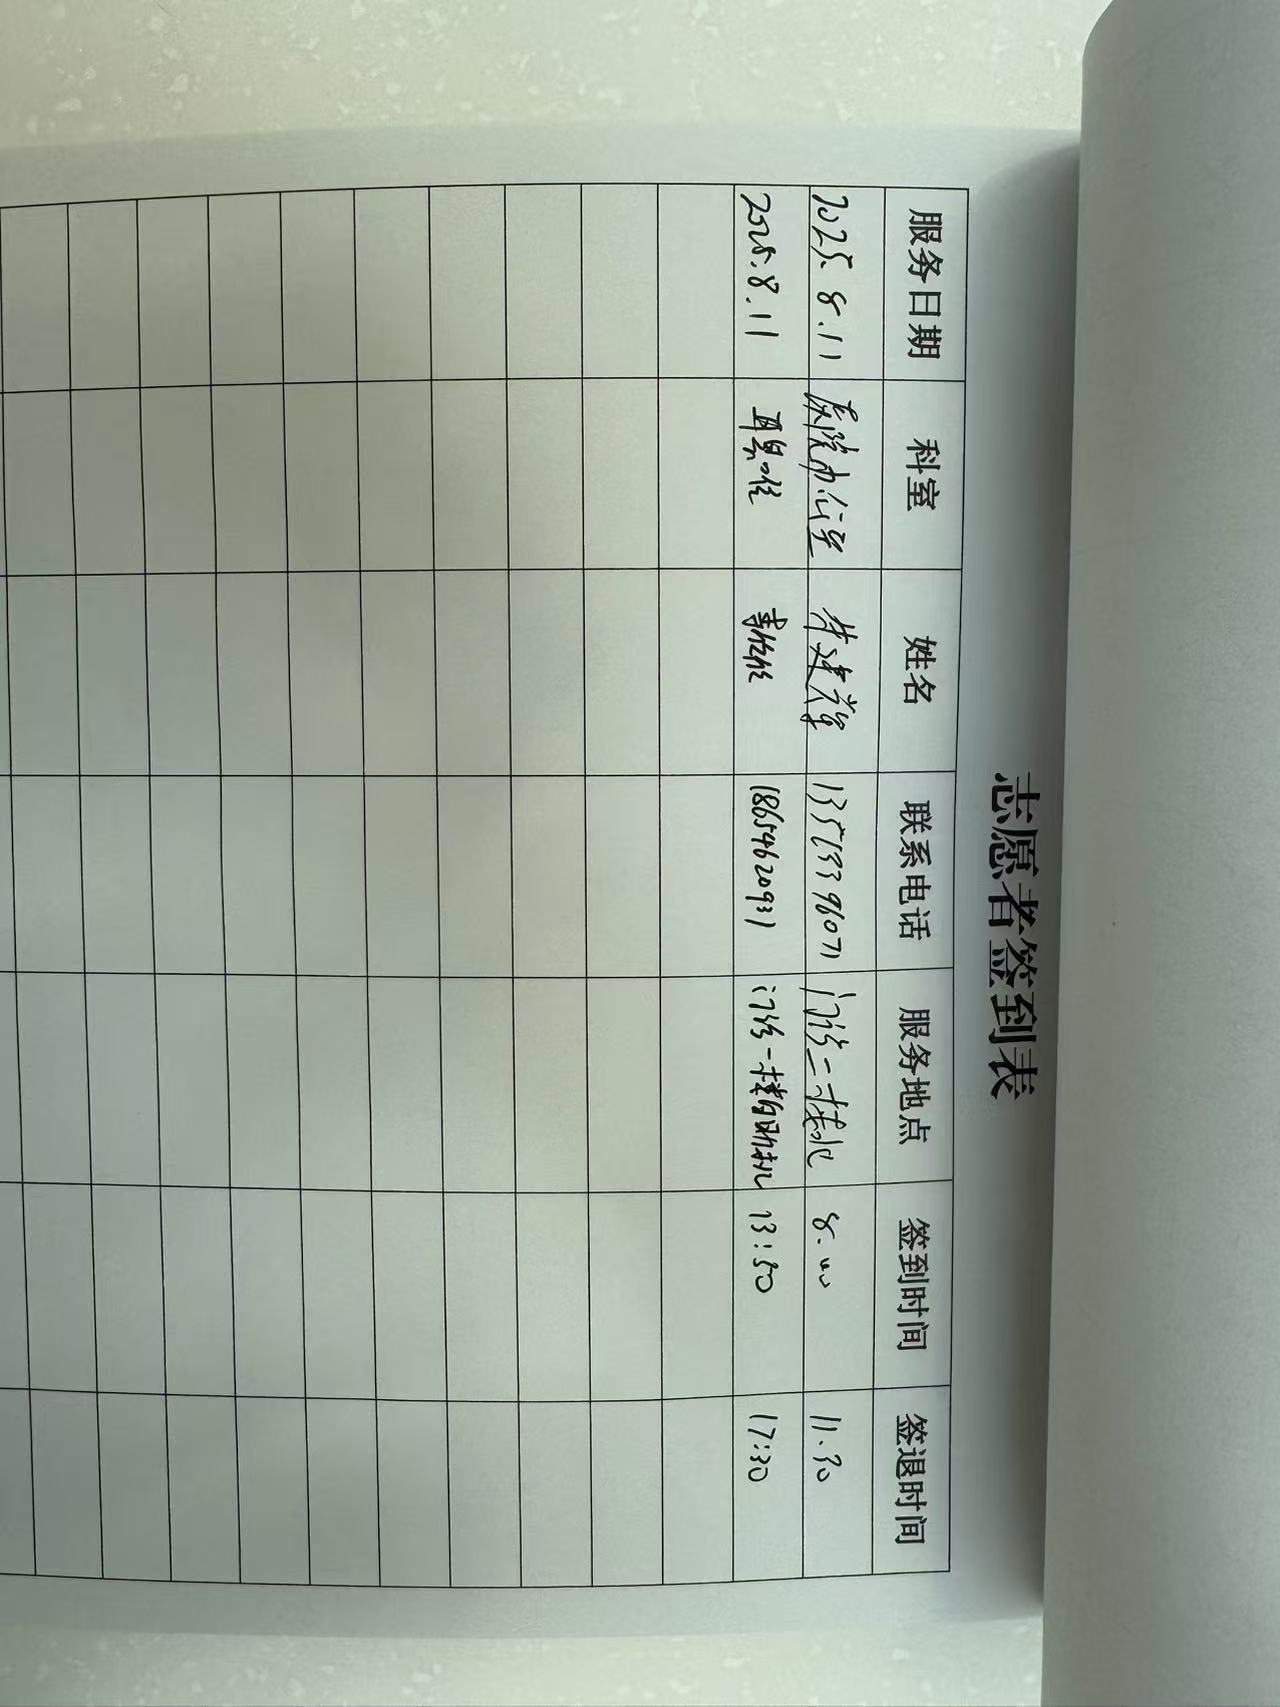 志愿者签到表
服务日期 科室 姓名 联系电话 服务地点 签到时间 签退时间
2025.8.11 医院办公室 门诊二楼 8.00 11.30
2025.8.11 耳鼻喉 18654620931 门诊一楼自助机 13:50 17:30